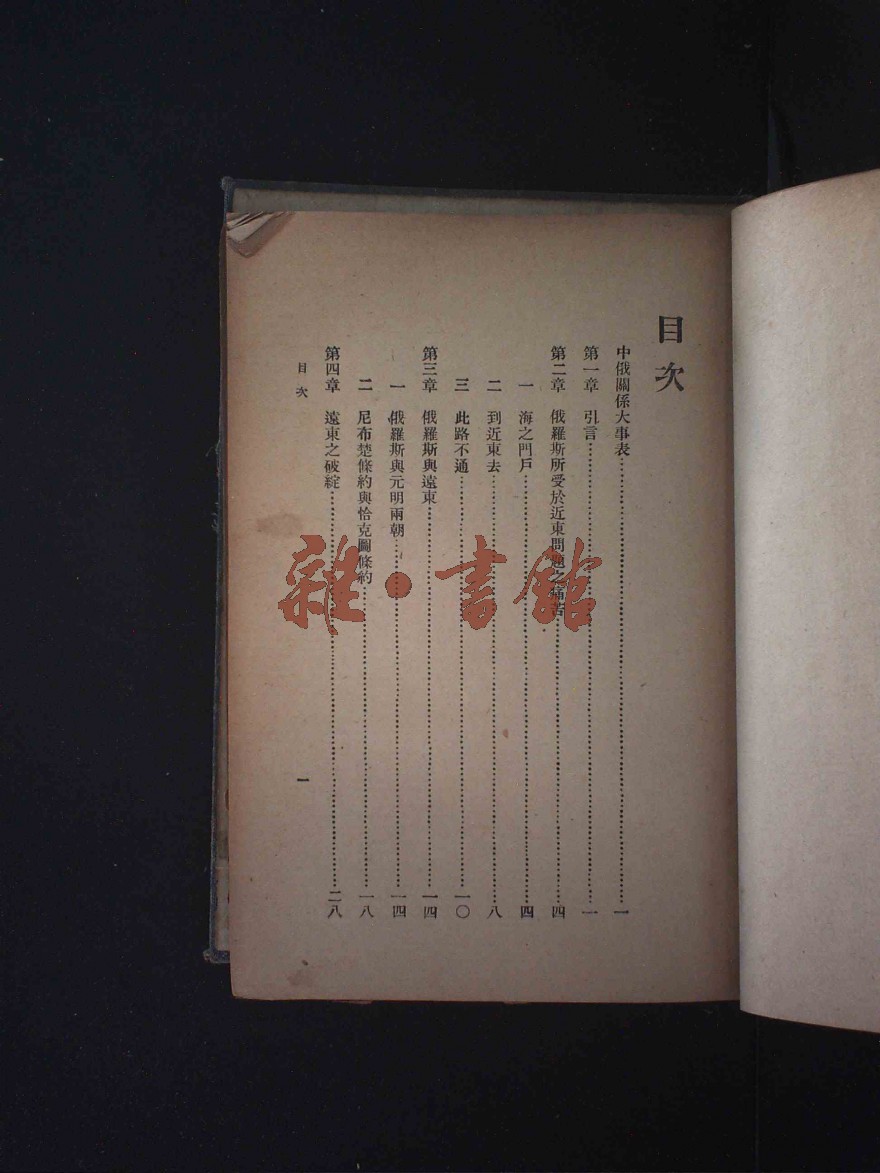 目次
中俄關係大事表……一
第一章 引言……一
第二章 俄羅斯所受於近東問題之痛苦……四
一 海之門戶……四
二 到近東去……八
三 此路不通……一〇
第三章 俄羅斯與遠東……一四
一 俄羅斯與元明兩朝……一四
二 尼布楚條約與恰克圖條約……一八
第四章 遠東之破綻……二八
目次
一
雜·書館